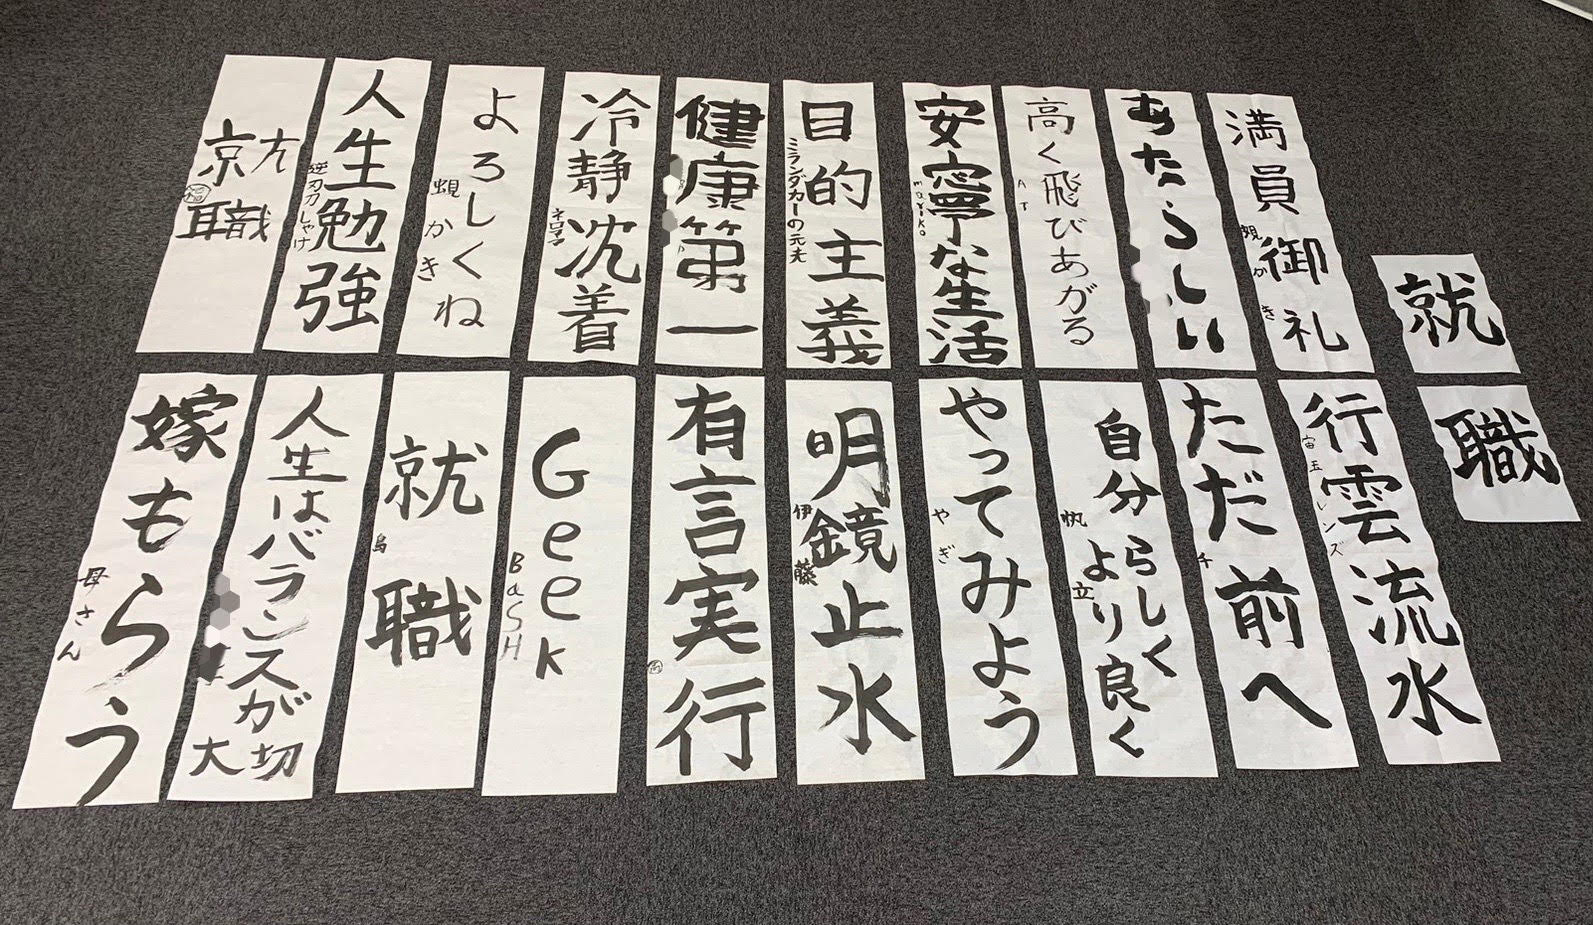 就
職
満員御礼
蜆かき
あたらしい
高く飛びあがる
AT
安寧な生活
mariko
目的主義
ミランダカーの元夫
健康第一
冷静沈着
ネロママ
よろしくね
蜆かき
人生勉強
逆刃刀しゃけ
就職
行雲流水
宙玉レンズ
ただ前へ
チ
自分らしく
より良く
帆立
やってみよう
やぎ
明鏡止水
伊藤
有言実行
Geek
BaSH
就職
烏
人生はバランスが
大切
嫁もらう
母さん